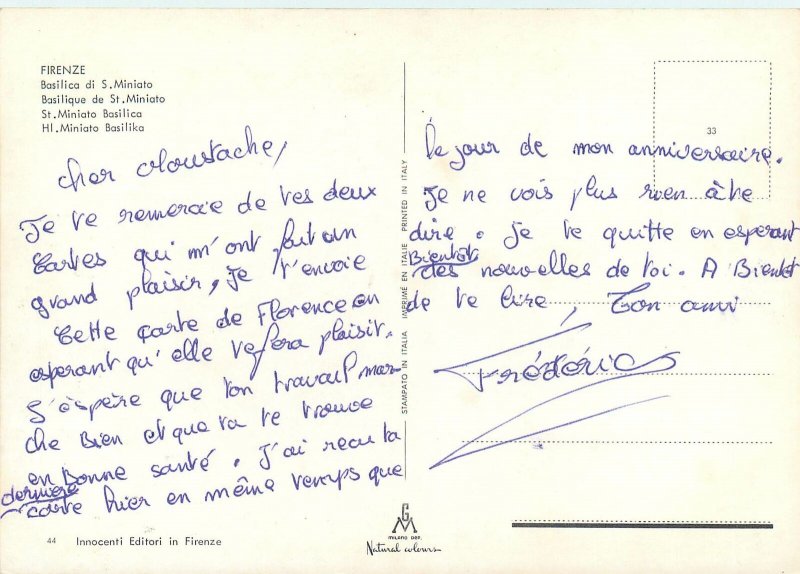 FIRENZE
Basilica di S. Miniato
Basilique de St. Miniato
St. Miniato Basilica
Hl. Miniato Basilika
Cher Moustache,
Je te remercie de tes deux
Cartes qui m'ont fait un
grand plaisir, je t'envoie
Cette carte de Florence en
esperant qu'elle te fera plaisir.
J'éspère que ton travail mar-
che Bien et que ta te trouve
en Bonne santé. J'ai recu ta
dernière
carte hier en même temps que
44 Innocenti Editori in Firenze
STAMPATO IN ITALIA IMPRIMÉ EN ITALIE PRINTED IN ITALY
GM
MILANO DEP.
Natural colours
33
le jour de mon anniversaire.
Je ne vois plus rien à te
dire. Je te quitte en esperant
Bientôt
des nouvelles de toi. A Bientôt
de te lire, Ton ami
Frédéric